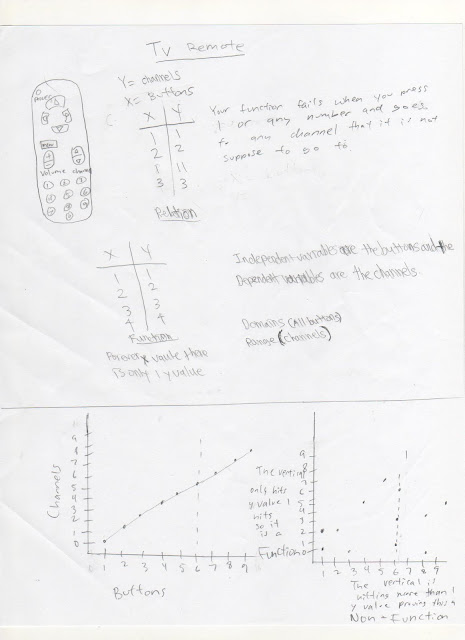 Tv Remote
Y= channels
X= Buttons
X Y
1 1
2 2
1 11
3 3
Relation
Your function fails when you press
1 or any number and goes
to any channel that it is not
suppose to go to
Power
menu
volume channel
X Y
1 1
2 2
3 3
4 4
Function
For every x vaule there
is only 1 y value
Independent variables are the buttons and the
Dependent variables are the channels.
Domains (All buttons)
Range (channels)
Channels
9
8
7
6
5
4
3
2
1
0
1 2 3 4 5 6 7 8 9
Buttons
The vertical
only hits
y value 1
hits
so it
is a
Function
9
8
7
6
5
4
3
2
1
0
1 2 3 4 5 6 7 8 9
The vertical is
hitting more than 1
y value proves this a
Non-Function